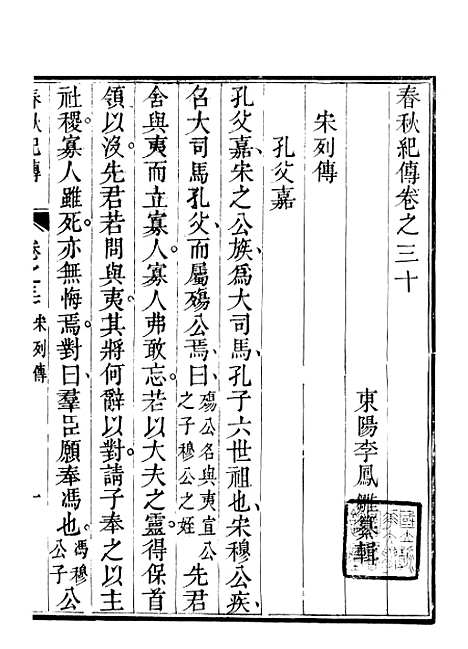 春秋紀傳卷之三十
東陽李鳳雛纂輯
宋列傳
孔父嘉
孔父嘉、宋之公族、爲大司馬、孔子六世祖也、宋穆公疾、
名大司馬孔父、而屬殤公焉、曰、殤公名與夷宣公之子穆公之姪先君
舍與夷而立寡人、寡人弗敢忘。若以大夫之靈、得保首
領以沒、先君若問與夷。其將何辭以對。請子奉之以主
社稷。寡人雖死。亦無悔焉。對曰、羣臣願奉馮也。馮穆公子公
春秋紀傳 卷之三十 宋列傳 一